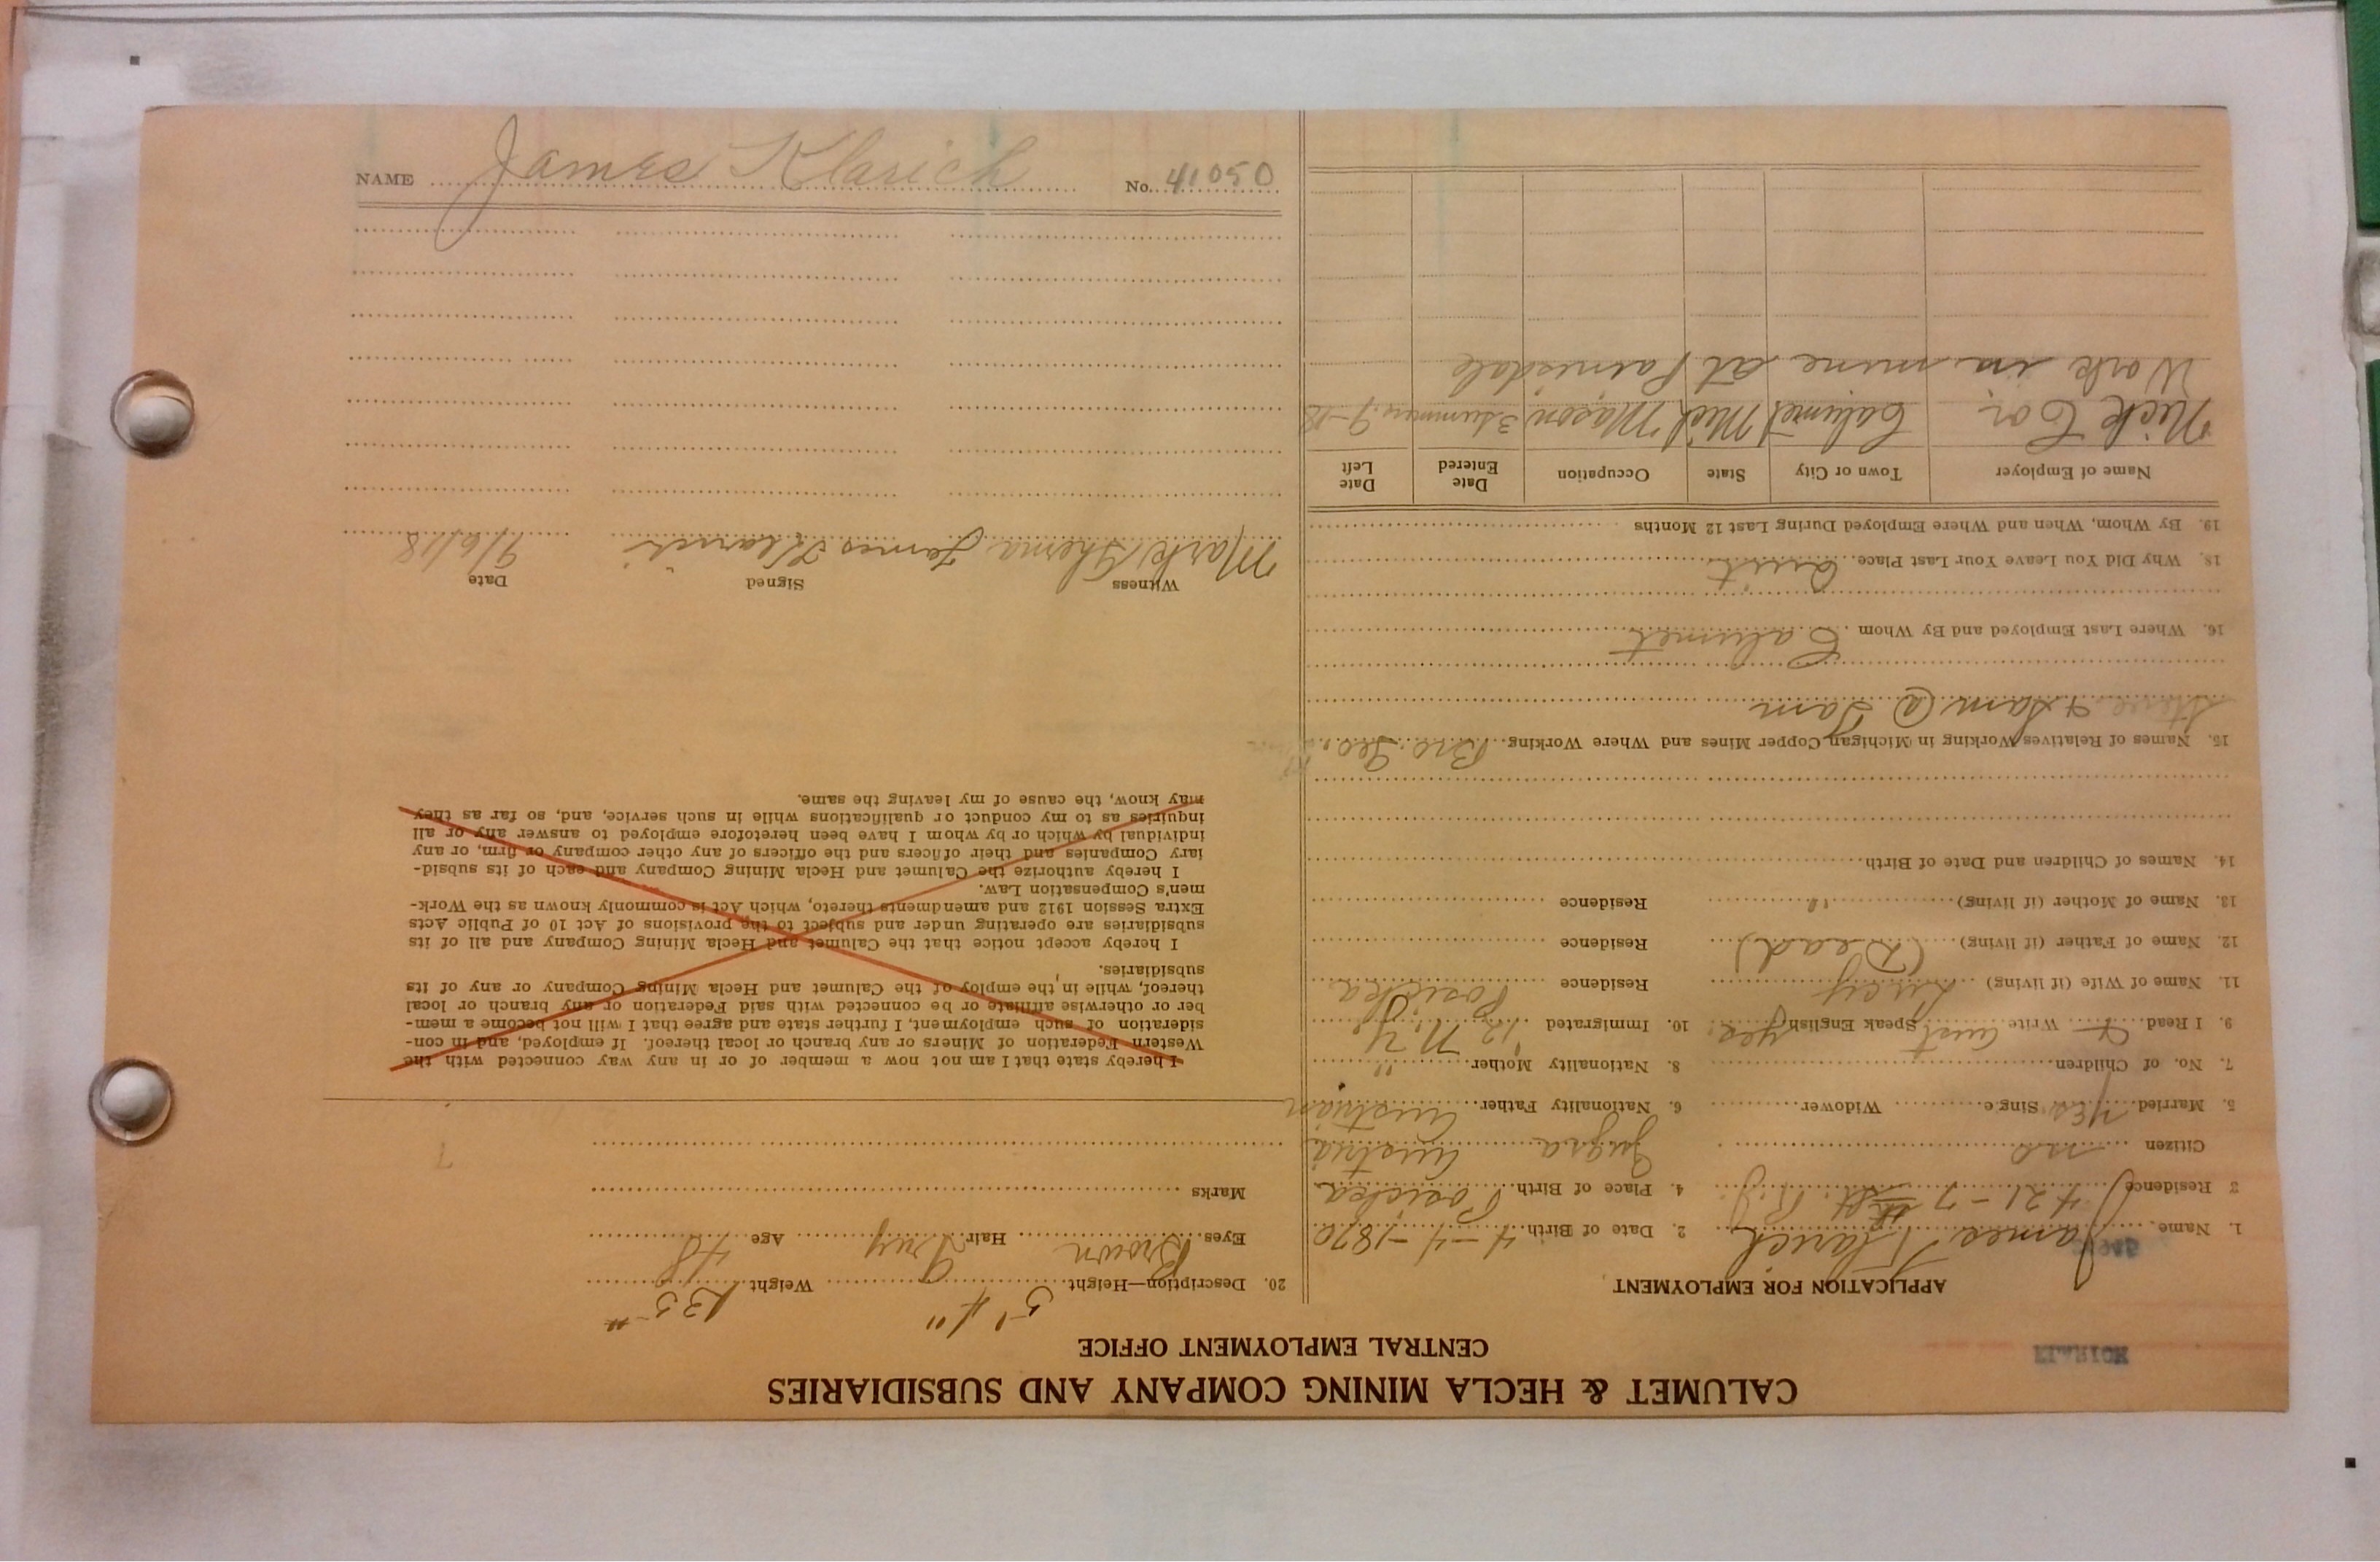 KLARICH
CALUMET & HECLA MINING COMPANY AND SUBSIDIARIES
CENTRAL EMPLOYMENT OFFICE
APPLICATION FOR EMPLOYMENT
1. Name James Klarich 2. Date of Birth 4-4-1870
3 Residence 421-7 St R.J. 4. Place of Birth Posicka
Citizen no Austria
5. Married Yes Single Widower 6. Nationality Father Austrian
7. No. of Children 8. Nationality Mother "
9. I Read & Write Aust Speak English yes. 10. Immigrated '12 N.Y.
11. Name of Wife (if living) Lucy Residence Posicka
12. Name of Father (if living) (Dead) Residence
13. Name of Mother (if living) " Residence
14. Names of Children and Date of Birth
15. Names of Relatives Working in Michigan Copper Mines and Where Working Bro. Geo.,
Steve & Sam @ Tam
16. Where Last Employed and By Whom Calumet
18. Why Did You Leave Your Last Place quit
19. By Whom, When and Where Employed During Last 12 Months
Name of Employer Town or City State Occupation Date Entered Date Left
Nick Cor Calumet Mich Mason 3 summers 9-18
Work in mine at Painesdale
20. Description—Height 5' 4" Weight 135 "
Eyes Brown Hair Grey Age 48
Marks
I hereby state that I am not now a member of or in any way connected with the
Western Federation of Miners or any branch or local thereof. If employed, and in con-
sideration of such employment, I further state and agree that I will not become a mem-
ber or otherwise affiliate or be connected with said Federation or any branch or local
thereof, while in the employ of the Calumet and Hecla Mining Company or any of its
subsidiaries.
I hereby accept notice that the Calumet and Hecla Mining Company and all of its
subsidiaries are operating under and subject to the provisions of Act 10 of Public Acts
Extra Session 1912 and amendments thereto, which Act is commonly known as the Work-
men's Compensation Law.
I hereby authorize the Calumet and Hecla Mining Company and each of its subsid-
iary Companies and their officers and the officers of any other company or firm, or any
individual by which or by whom I have been heretofore employed to answer any or all
inquiries as to my conduct or qualifications while in such service, and, so far as they
may know, the cause of my leaving the same.
Witness Signed Date
Mark Sherna James Klarich 9/6/18
NAME James Klarich No. 41050